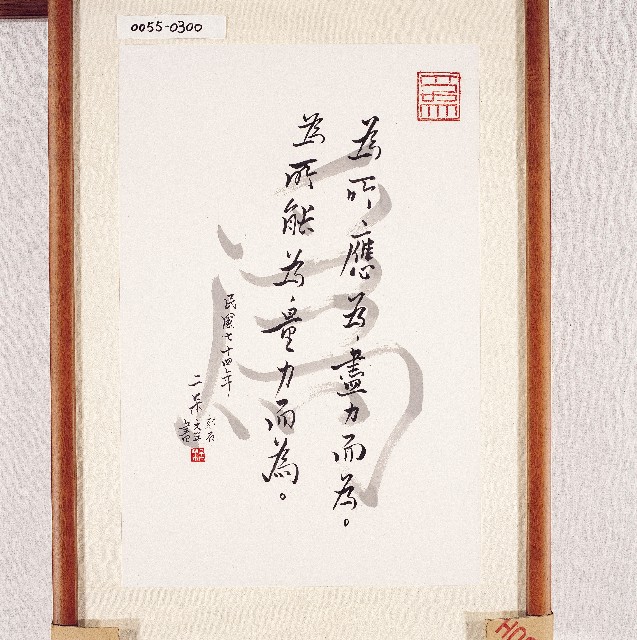 0055-0300
為所應為、盡力而為。
為所能為、量力而為。
民國七十四年、
二呆
為